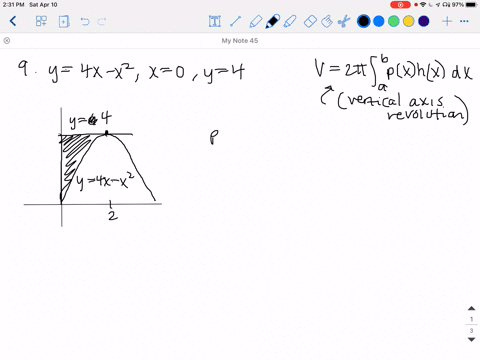 2:31 PM Sat Apr 10
97%
My Note 45
9. y = 4x - x², x = 0, y = 4
V = 2π∫ₐᵇ p(x)h(x) dx
(vertical axis
revolution)
y = 4
p
y = 4x - x²
2
1
3